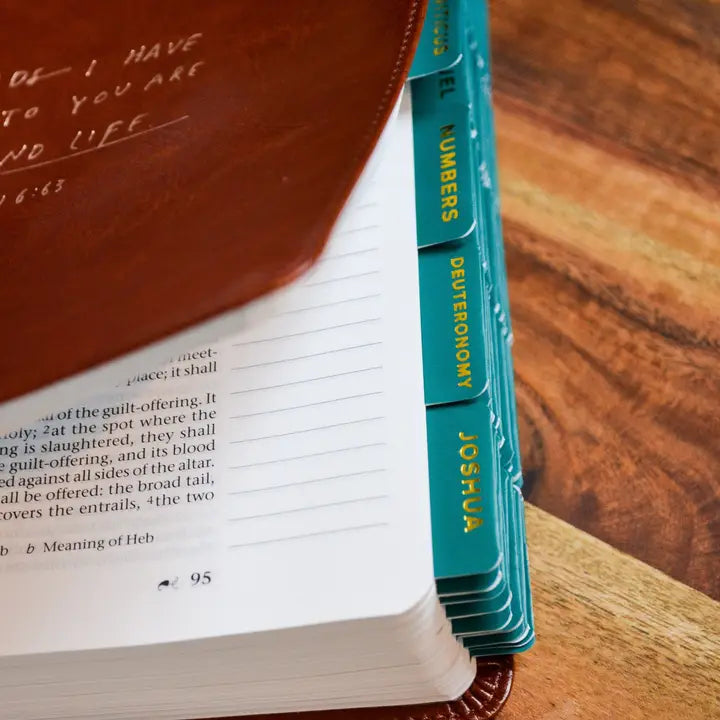 I HAVE
TO YOU ARE
AND LIFE
6:63
NUMBERS
DEUTERONOMY
JOSHUA
meet-
place; it shall
of the guilt-offering. It
holy; 2at the spot where the
is slaughtered, they shall
guilt-offering, and its blood
against all sides of the altar.
be offered: the broad tail,
covers the entrails, 4the two
b Meaning of Heb
95